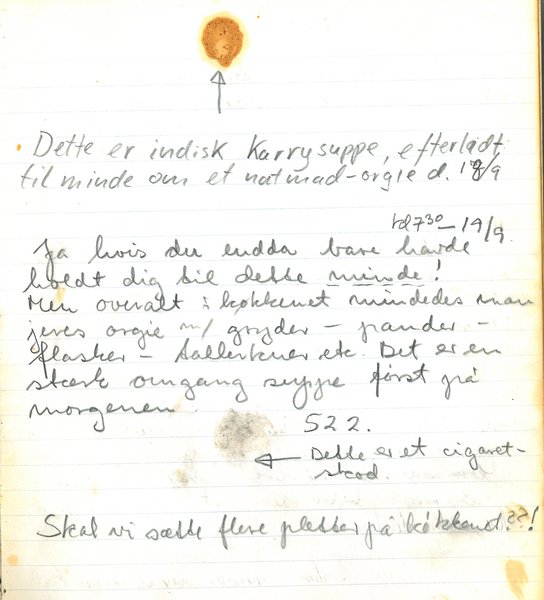 Dette er indisk Karrysuppe, efterladt
til minde om et natmad-orgie d. 18/9
kl 7³⁰ - 19/9
Ja hvis du endda bare havde
holdt dig til dette minde!
Men overalt i køkkenet mindedes man
jeres orgie m/ gryder - pander -
flasker - tallerkner etc. Det er en
stærk omgang suppe først på
morgenen.
522.
Dette er et cigaret-
skod.
Skal vi sætte flere pletter på køkkenet??!